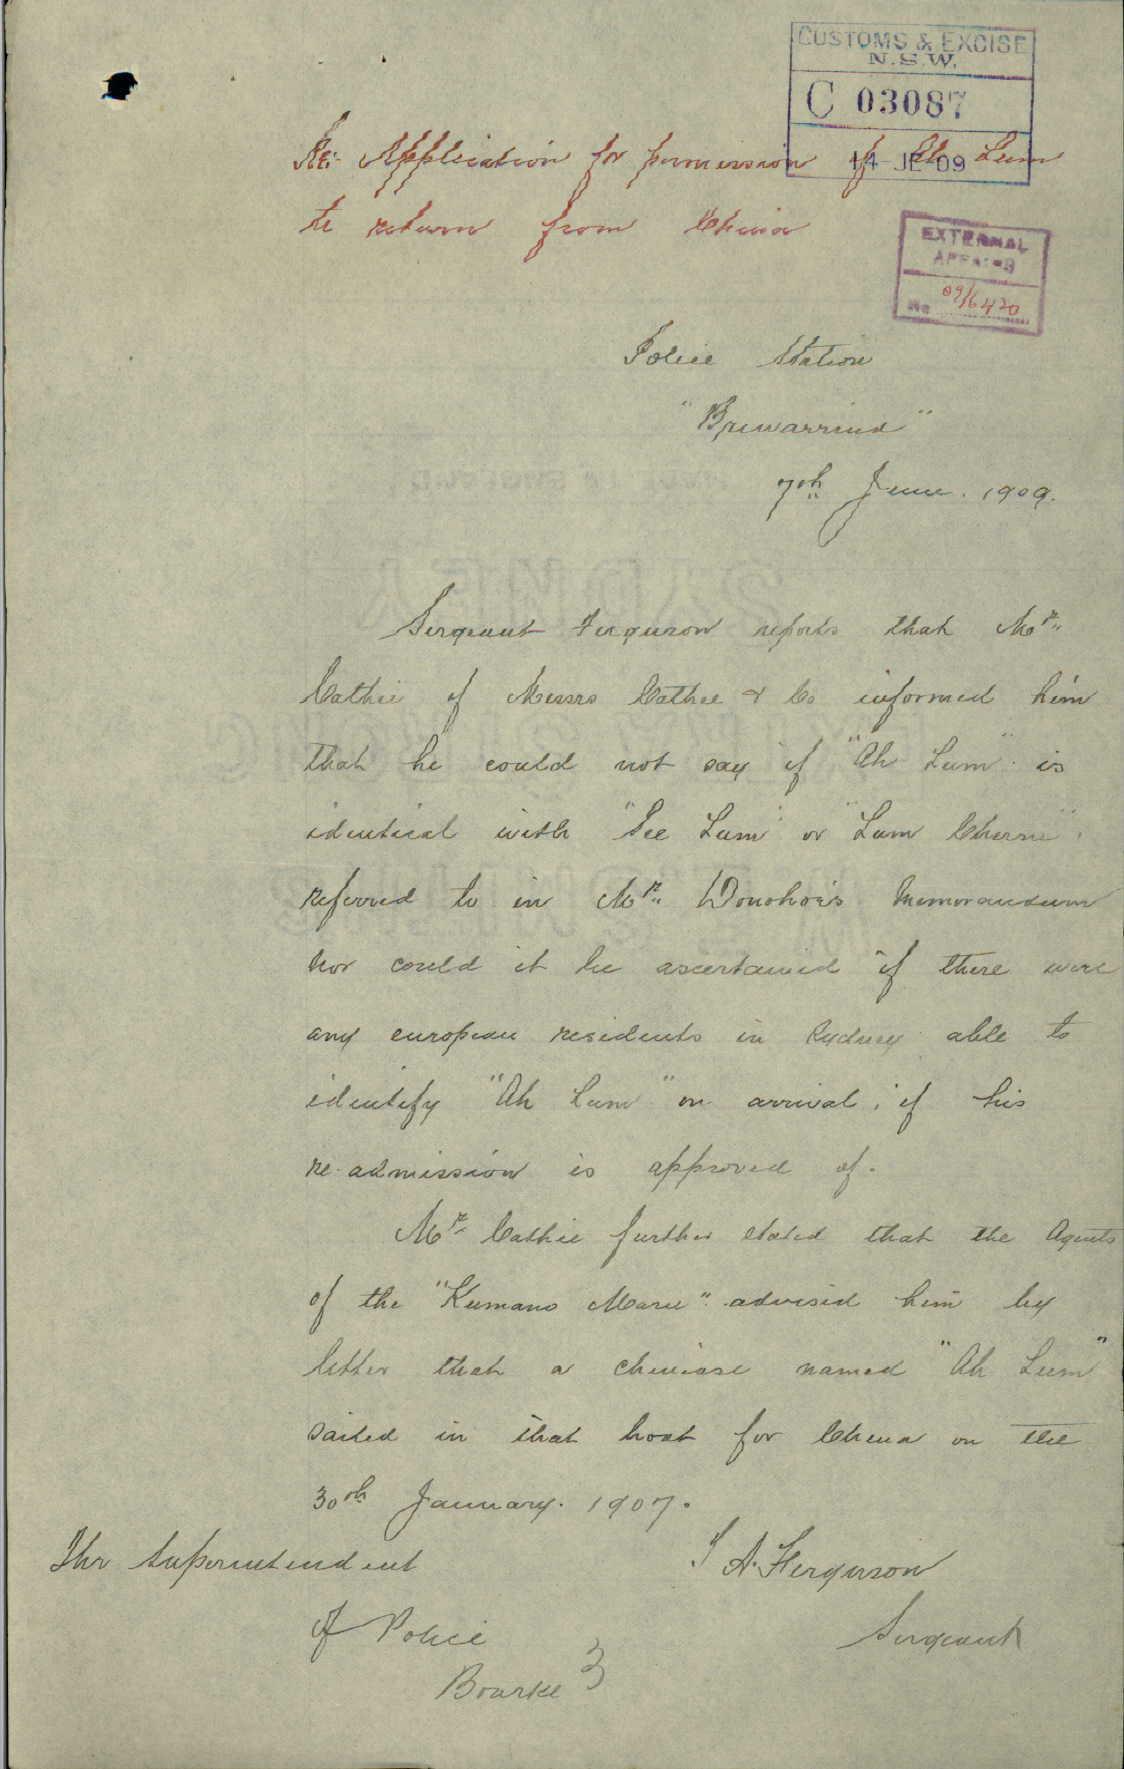 CUSTOMS & EXCISE
N.S.W.
C 03087
14 JE 09
Re:- Application for permission of Ah Lum
to return from China
EXTERNAL
AFFAIRS
No 09/6420
Police Station
"Brewarrina"
7th June. 1909.
Sergeant Ferguson reports that Mr.
Cathie of Messrs Cathie & Co informed him
that he could not say if "Ah Lum" is
identical with "See Lum" or "Lum
referred to in Mr. Donohoe's Memorandum
nor could it be ascertained if there were
any european residents in Sydney able to
identify "Ah Lum" on arrival, if his
re-admission is approved of.
Mr. Cathie further stated that the Agents
of the "Kumano Maru" advised him by
letter that a chinese named "Ah Lum"
sailed in that boat for China on the
30th January. 1907.
The Superintendent
A. Ferguson
of Police
Sergeant
Bourke